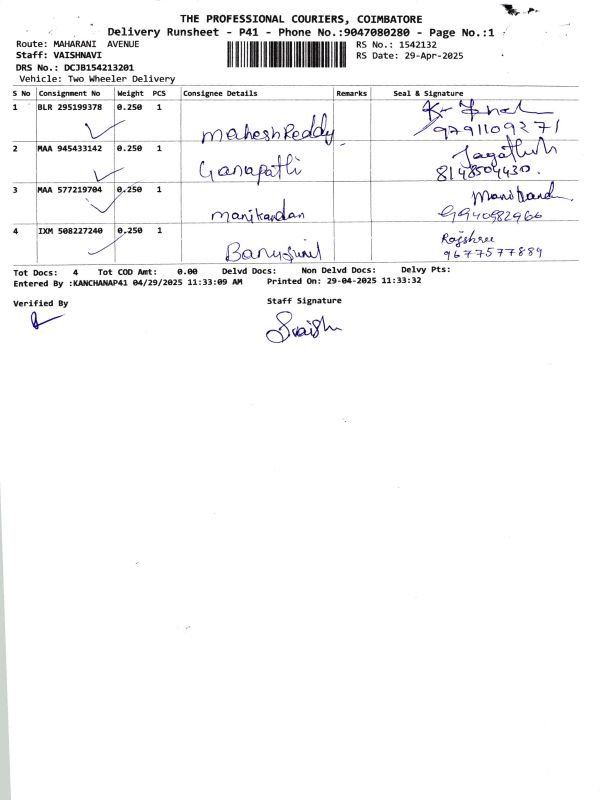 THE PROFESSIONAL COURIERS, COIMBATORE
Delivery Runsheet - P41 - Phone No.:9047080280 - Page No.:1
Route: MAHARANI AVENUE
RS No.: 1542132
Staff: VAISHNAVI
RS Date: 29-Apr-2025
DRS No.: DCJB154213201
Vehicle: Two Wheeler Delivery
S No Consignment No Weight PCS Consignee Details Remarks Seal & Signature
1 BLR 295199378 0.250 1
MaheshReddy
9791109271
2 MAA 945433142 0.250 1
Ganapathi
8148504430.
3 MAA 577219704 0.250 1
Manikandan
9940982966
4 IXM 508227240 0.250 1
Rajshree
9677577889
Tot Docs: 4 Tot COD Amt: 0.00 Delvd Docs: Non Delvd Docs: Delvy Pts:
Entered By :KANCHANAP41 04/29/2025 11:33:09 AM Printed On: 29-04-2025 11:33:32
Verified By
Staff Signature